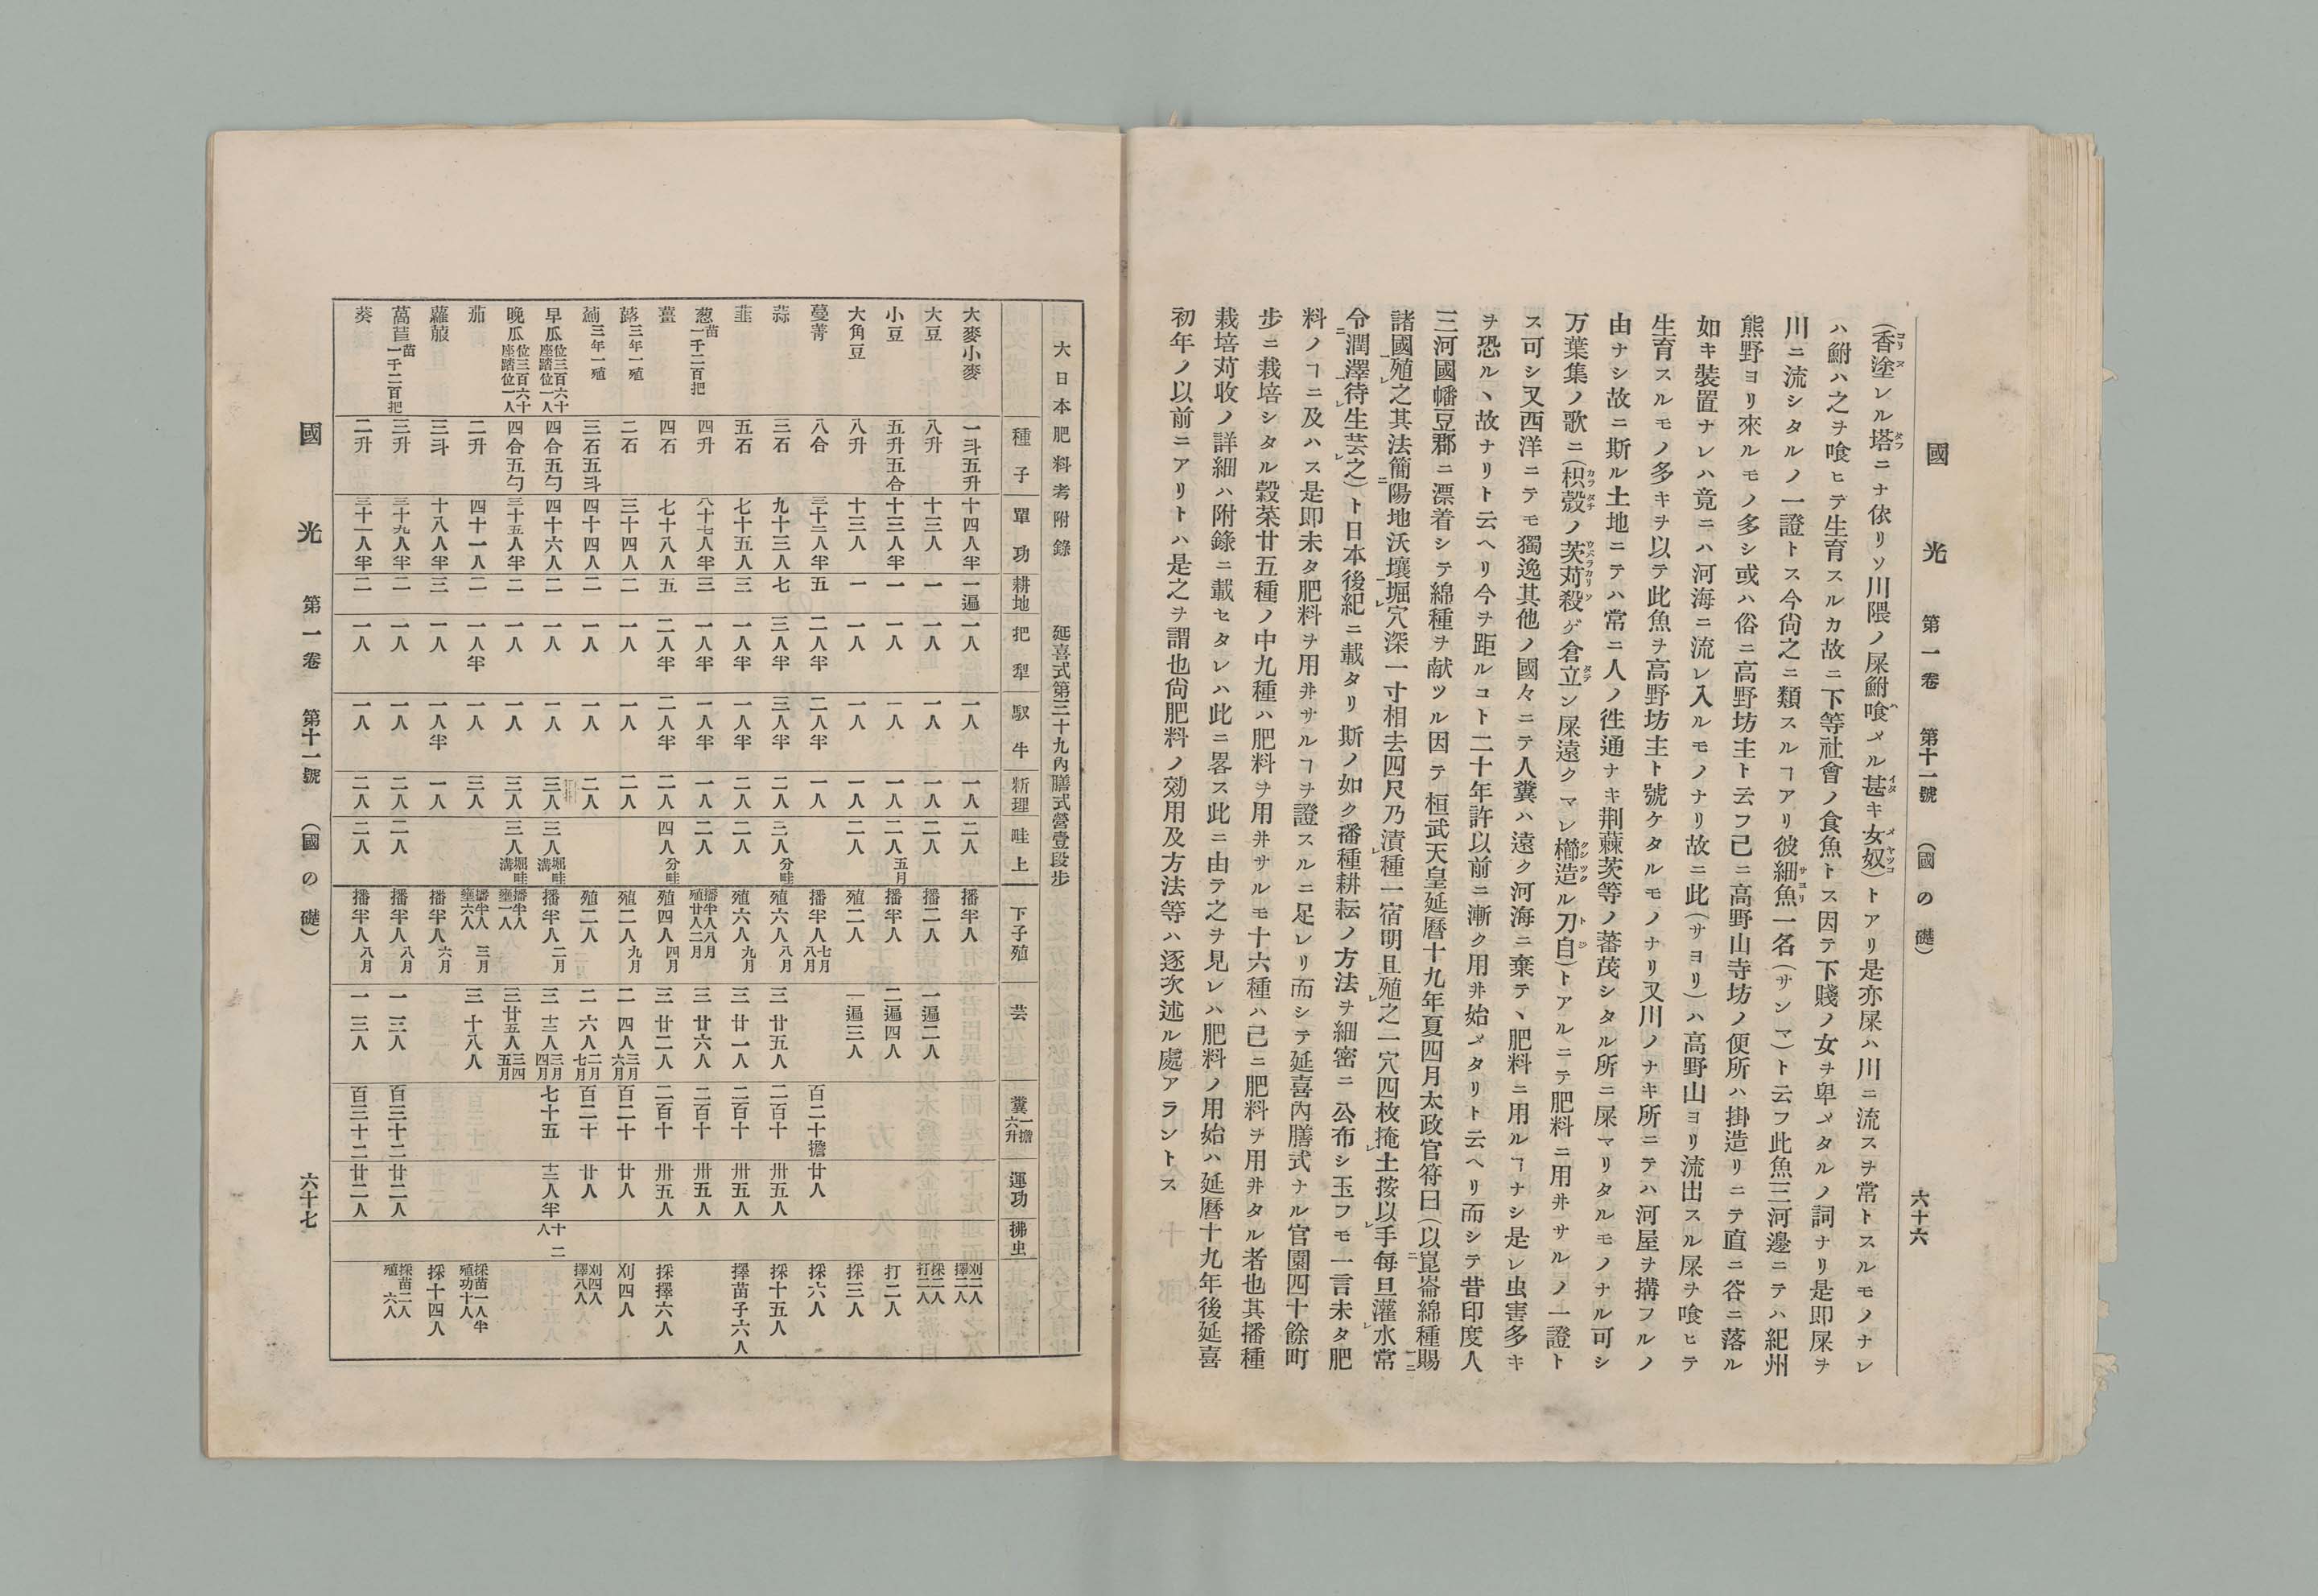 國光 第一卷 第十一號 (國の礎) 六十六
(香塗レル塔ニナ依リソ川隈ノ屎鮒喰メル甚キ女奴)トアリ是亦屎ハ川ニ流スヲ常トスルモノナレ
ハ鮒ハ之ヲ喰ヒテ生育スルカ故ニ下等社會ノ食魚トス因テ下賤ノ女ヲ卑メタルノ詞ナリ是即屎ヲ
川ニ流シタルノ一證トス今尙之ニ類スルヿアリ彼細魚一名(サンマ)ト云フ此魚三河邊ニテハ紀州
熊野ヨリ來ルモノ多シ或ハ俗ニ高野坊主ト云フ己ニ高野山寺坊ノ便所ハ掛造リニテ直ニ谷ニ落ル
如キ裝置ナレハ竟ニハ河海ニ流レ入ルモノナリ故ニ此(サヨリ)ハ高野山ヨリ流出スル屎ヲ喰ヒテ
生育スルモノ多キヲ以テ此魚ヲ高野坊主ト號ケタルモノナリ又川ノナキ所ニテハ河屋ヲ搆フルノ
由ナシ故ニ斯ル土地ニテハ常ニ人ノ徃通ナキ荆蕀茨等ノ蕃茂シタル所ニ屎マリタルモノナル可シ
万葉集ノ歌ニ(枳殼ノ茨苅殺ゲ倉立ン屎遠クマレ櫛造ル刀自)トアルニテ肥料ニ用井サルノ一證ト
ス可シ又西洋ニテモ獨逸其他ノ國々ニテ人糞ハ遠ク河海ニ棄テヽ肥料ニ用ルヿナシ是レ虫害多キ
ヲ恐ルヽ故ナリト云ヘリ今ヲ距ルコト二十年許以前ニ漸ク用井始メタリト云ヘリ而シテ昔印度人
三河國幡豆郡ニ漂着シテ綿種ヲ献ツル因テ桓武天皇延曆十九年夏四月太政官符曰(以崑崙綿種賜
諸國殖之其法簡陽地沃壤堀穴深一寸相去四尺乃漬種一宿明旦殖之一穴四枚掩土按以手每旦灌水常
令潤澤待生芸之)ト日本後紀ニ載タリ斯ノ如ク播種耕耘ノ方法ヲ細密ニ公布シ玉フモ一言未タ肥
料ノヿニ及ハス是即未タ肥料ヲ用井サルヿヲ證スルニ足レリ而シテ延喜內膳式ナル官園四十餘町
步ニ栽培シタル穀菜廿五種ノ中九種ハ肥料ヲ用井サルモ十六種ハ己ニ肥料ヲ用井タル者也其播種
栽培苅收ノ詳細ハ附錄ニ載セタレハ此ニ畧ス此ニ由テ之ヲ見レハ肥料ノ用始ハ延曆十九年後延喜
初年ノ以前ニアリトハ是之ヲ謂也尙肥料ノ効用及方法等ハ逐次述ル處アラントス
大日本肥料考附錄 延喜式第三十九內膳式營壹段步
種子 單功 耕地 把犁 馭牛 料理 畦上 下子殖 芸 糞一擔六升 運功 拂虫
大麥小麥 一斗五升 十四人半 一遍 一人 一人 一人 二人 播半人 刈二人擇二人
大豆 八升 十三人 一 一人 一人 一人 二人 播二人 一遍二人 採二人打二人
小豆 五升五合 十三人半 一 一人 一人 一人 二人五月 播半人 二遍四人 打二人
大角豆 八升 十三人 一 一人 一人 一人 二人 殖二人 一遍三人 採三人
蔓菁 八合 三十二人半 五 二人半 二人半 一人 播半人七月八月 百二十擔 廿人 採六人
蒜 三石 九十三人 七 三人半 三人半 二人 三人分畦 殖六人八月 三 廿五人 二百十 卅五人 採十五人
韮 五石 七十五人 三 一人半 一人半 二人 二人 殖六人九月 三 廿一人 二百十 卅五人 擇苗子六人
葱苗一千二百把 四升 八十七人半 三 一人半 一人半 一人 二人 播半人八月殖廿人二月 三 廿六人 二百十 卅五人
薑 四石 七十八人 五 二人半 二人半 二人 四人分畦 殖四人四月 三 廿二人 二百十 卅五人 採擇六人
蕗三年一殖 二石 三十四人 二 一人 一人 二人 殖二人九月 二 四人三月六月 百二十 廿人 刈四人
三年一殖 三石五斗 四十四人 二 一人 一人 二人 殖二人 二 六人二月七月 百二十 廿人 刈四人擇八人
早瓜位三百六十座踏位一人 四合五勺 四十六人 二 一人 一人 三人 三人堀畦溝 播半人二月 三 十三人三月四月 七十五 十三人半 十二人
晚瓜位三百六十座踏位一人 四合五勺 三十五人半 二 一人 一人 三人 三人堀畦溝 播半人壅一人 三 廿五人三四五月
茄 二升 四十一人 二 一人半 一人 三人 播半人壅六人三月 三 十八人 採苗一人半殖功十人
蘿菔 三斗 十八人半 三 一人 一人半 一人 播半人六月 採十四人
萵苣苗一千二百把 三升 三十九人半 二 一人 一人 二人 二人 播半人八月 一 三人 百三十二 廿二人 採苗二人殖六人
葵 二升 三十一人半 二 一人 一人 二人 二人 播半人八月 一 三人 百三十二 廿二人
國光 第一卷 第十一號 (國の礎) 六十七